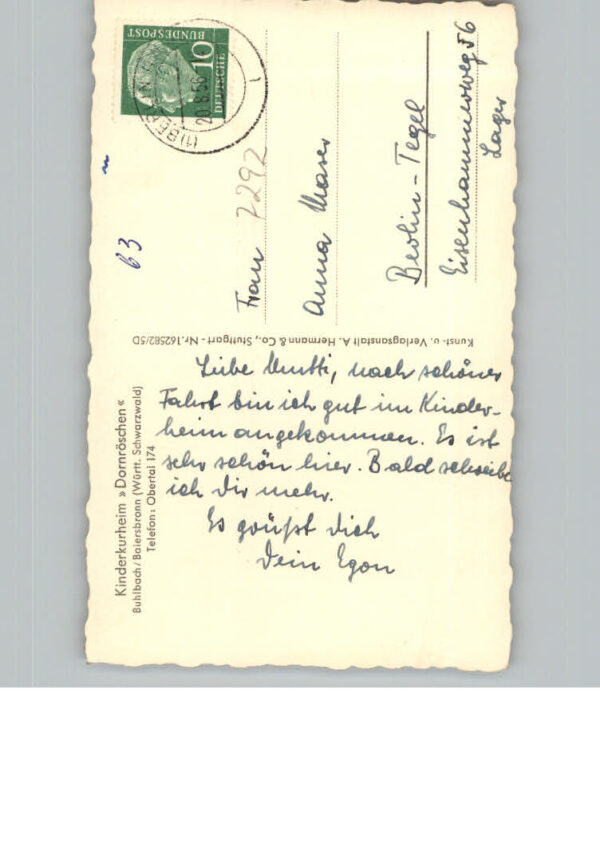 Kinderkurheim »Dornröschen«
Buhlbach/Baiersbronn (Württ. Schwarzwald)
Telefon: Obertal 174
Liebe Mutti, nach schöner
Fahrt bin ich gut im Kinder-
heim angekommen. Es ist
sehr schön hier. Bald schreibe
ich Dir mehr.
Es grüßt dich
Dein Egon
Kunst- u. Verlagsanstalt A. Hermann & Co., Stuttgart - Nr. 162582/5D
63
DEUTSCHE
BUNDESPOST
10
20.8.56
7292
Frau
Anna
Berlin-Tegel
Eisenhammerweg 56
Lager